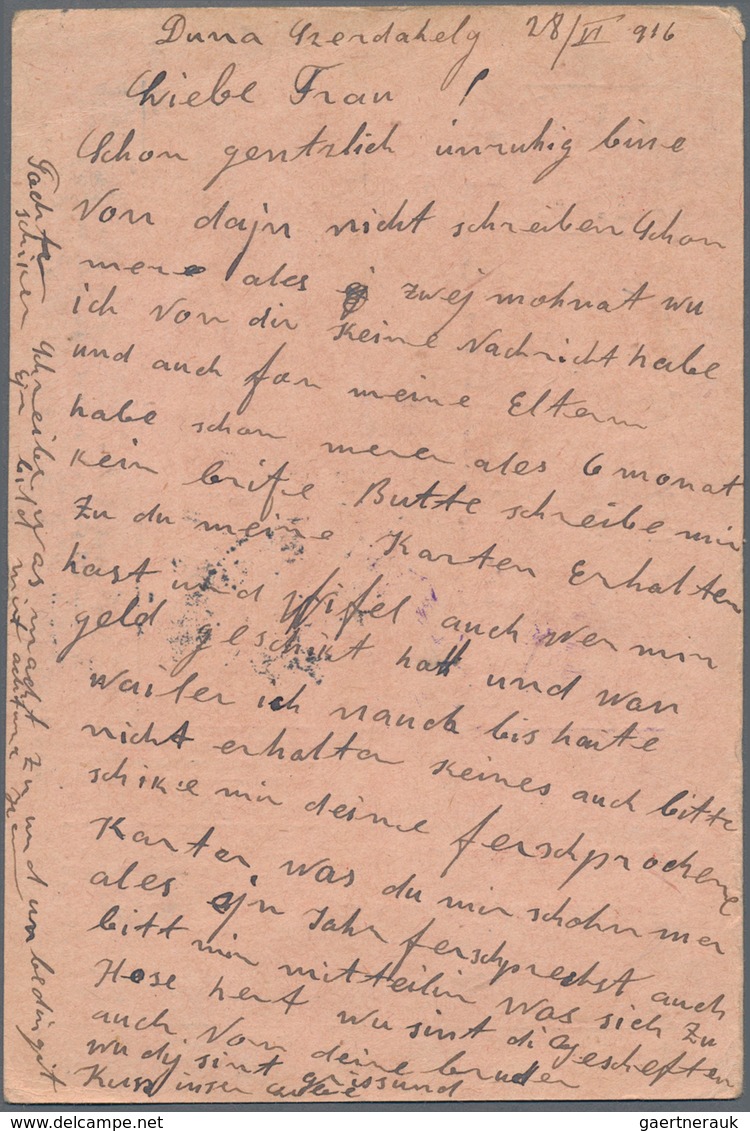 Duna Szerdahely 28/VI 916
Liebe Frau !
Schon gentzlich unruhig bine
Von dajn nicht schreiben Schon
mere ales zwej mohnat wu
ich von dir Keine Nachricht habe
und auch fon meine Eltern
habe schon merer ales 6 monat
Kein brife Butte schreibe mir
Zu du meine Karten Erhalten
hast und Wifel auch wer mir
geld geschikt hatt und wan
Wailer ich nauch bis haite
nicht erhalten Keines auch bitte
schike mir deine ferschprochene
Karten was du mir schohn mer
ales ejn Jahr ferschprechst auch
bitt mir mitteilin was sich Zu
Hose hert wu sint di Gescheften
auch Von deine bruder
wu dij sint grissund
Kuss
Tachte Schreiber was macht zu und unbedingt
schiken Ejn bild mit
gaertnerauk